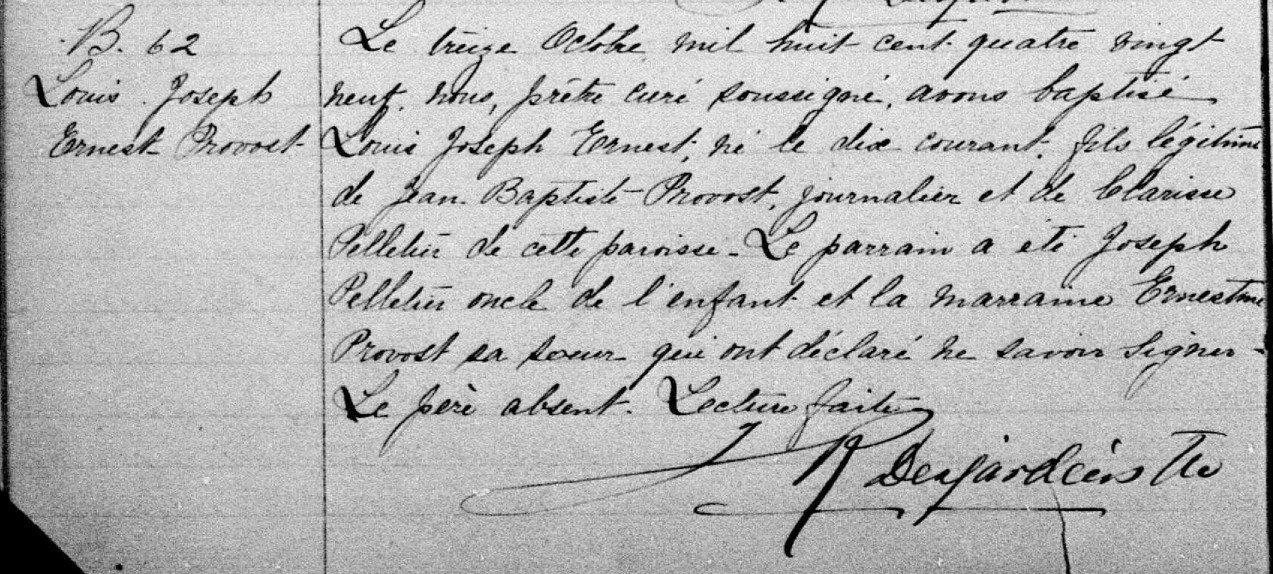 B. 62
Louis Joseph
Ernest Provost
Le treize Octobre mil huit cent quatre vingt
neuf, nous, prêtre curé soussigné, avons baptisé
Louis Joseph Ernest, né le dix courant, fils légitime
de Jean Baptiste Provost, journalier et de Clarisse
Pelletier de cette paroisse - Le parrain a été Joseph
Pelletier oncle de l'enfant et la marraine Ernestine
Provost sa soeur qui ont déclaré ne savoir signer -
Le père absent. Lecture faite
Desjardins Ptre